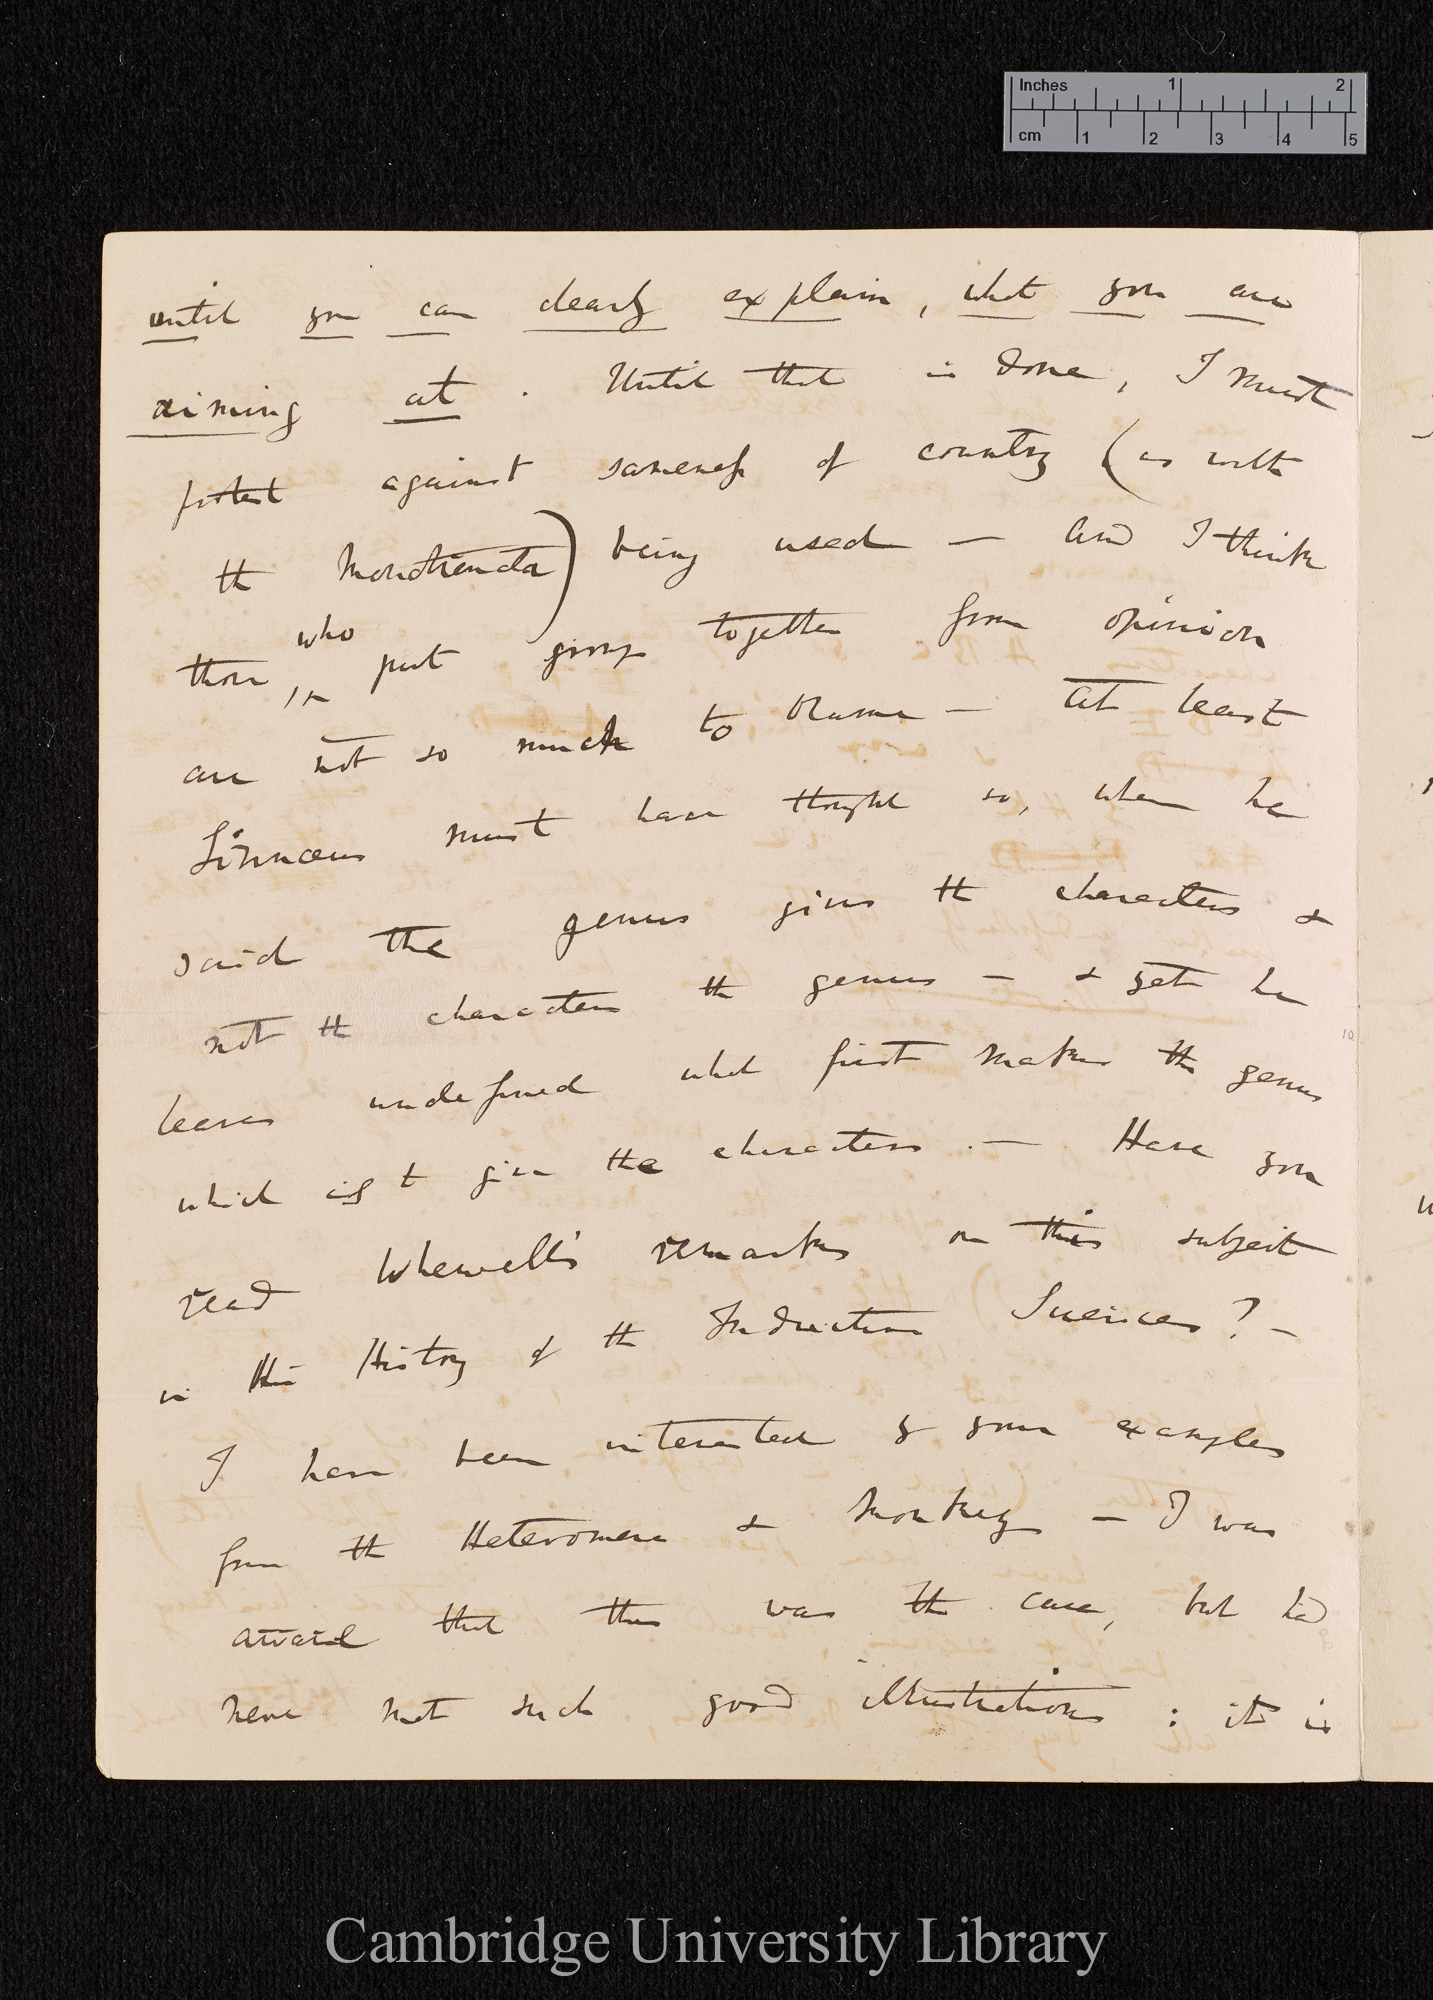 Inches 1 2
cm 1 2 3 4 5
until you can clearly explain, what you are
aiming at. Until that is done, I must
protest against sameness of country (as with
the Monotremata) being used — and I think
those, who put groups together from opinion
are not so much to blame — at least
Linnæus must have thought so, when he
said the genus gives the characters &
not the characters the genus — & yet he
leaves undefined what first makes the genus
which is to give the characters. — Have you
read Whewell's remarks on this subject
in the History of the Inductive Sciences? —
I have been interested by your examples
from the Heteromera & Monkeys — I was
aware that this was the case, but had
never met such good illustrations: it is
Cambridge University Library